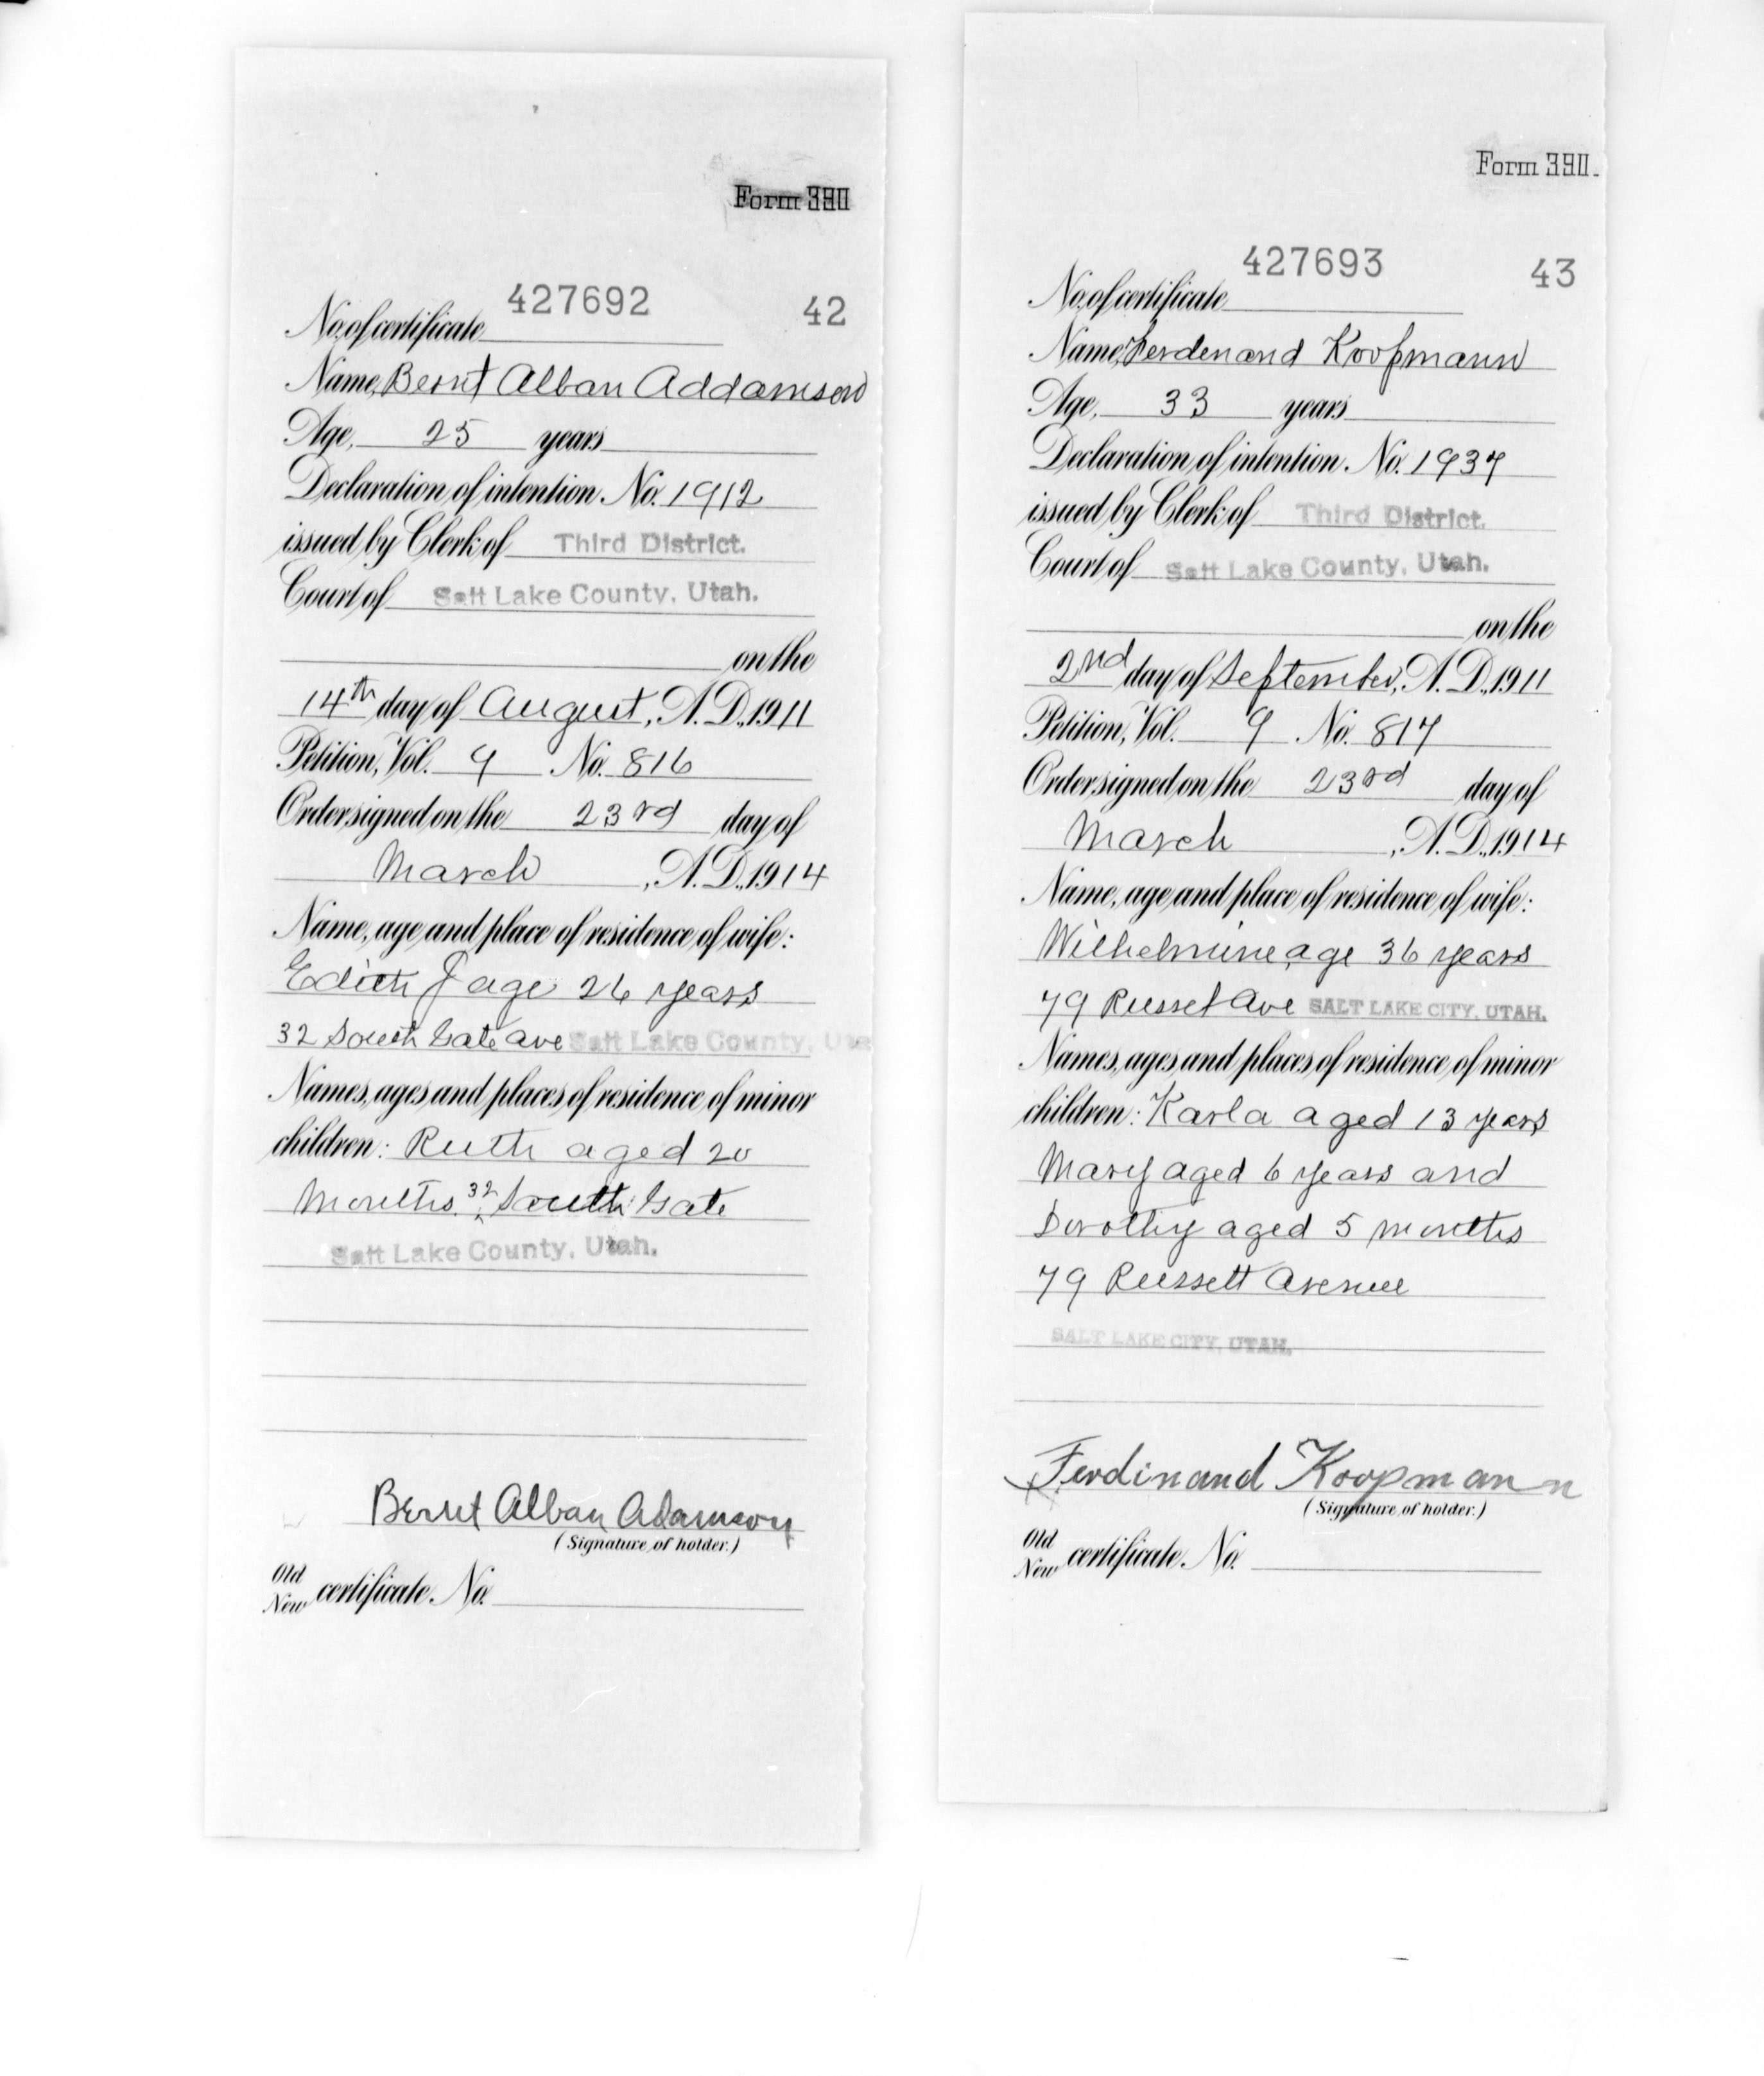 Form 390
427692 42
No. of certificate
Name, Bernt Alban Addamson
Age, 25 years
Declaration of intention No. 1912
issued by Clerk of Third District.
Court of Salt Lake County, Utah.
on the
14th day of August, A.D. 1911
Petition, Vol. 9 No. 816
Order signed on the 23rd day of
March, A.D. 1914
Name, age and place of residence of wife:
Edith J age 26 years
32 South Gate Ave Salt Lake County, Uta
Names, ages and places of residence of minor
children: Ruth aged 20
Months. 32 South Gate
Salt Lake County, Utah.
Bernt Alban Adamson
(Signature of holder.)
Old
New certificate No.
Form 390.
427693 43
No. of certificate
Name, Ferdenand Koopmann
Age, 33 years
Declaration of intention No. 1937
issued by Clerk of Third District.
Court of Salt Lake County, Utah.
on the
2nd day of September, A.D. 1911
Petition, Vol. 9 No. 817
Order signed on the 23rd day of
March, A.D. 1914
Name, age and place of residence of wife:
Wilhelmine, age 36 years
79 Russet Ave SALT LAKE CITY, UTAH.
Names, ages and places of residence of minor
children: Karla aged 13 years
Mary aged 6 years and
Dorothy aged 5 months
79 Russett Avenue
SALT LAKE CITY, UTAH.
Ferdinand Koopmann
(Signature of holder.)
Old
New certificate No.